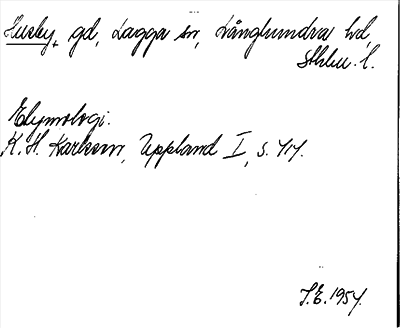 Husby, gd, Lagga sn, Långhundra hd,
Sthlm. l.
Etymologi.
K. H. Karlsson, Uppland I, s. 417.
S.E. 1954.